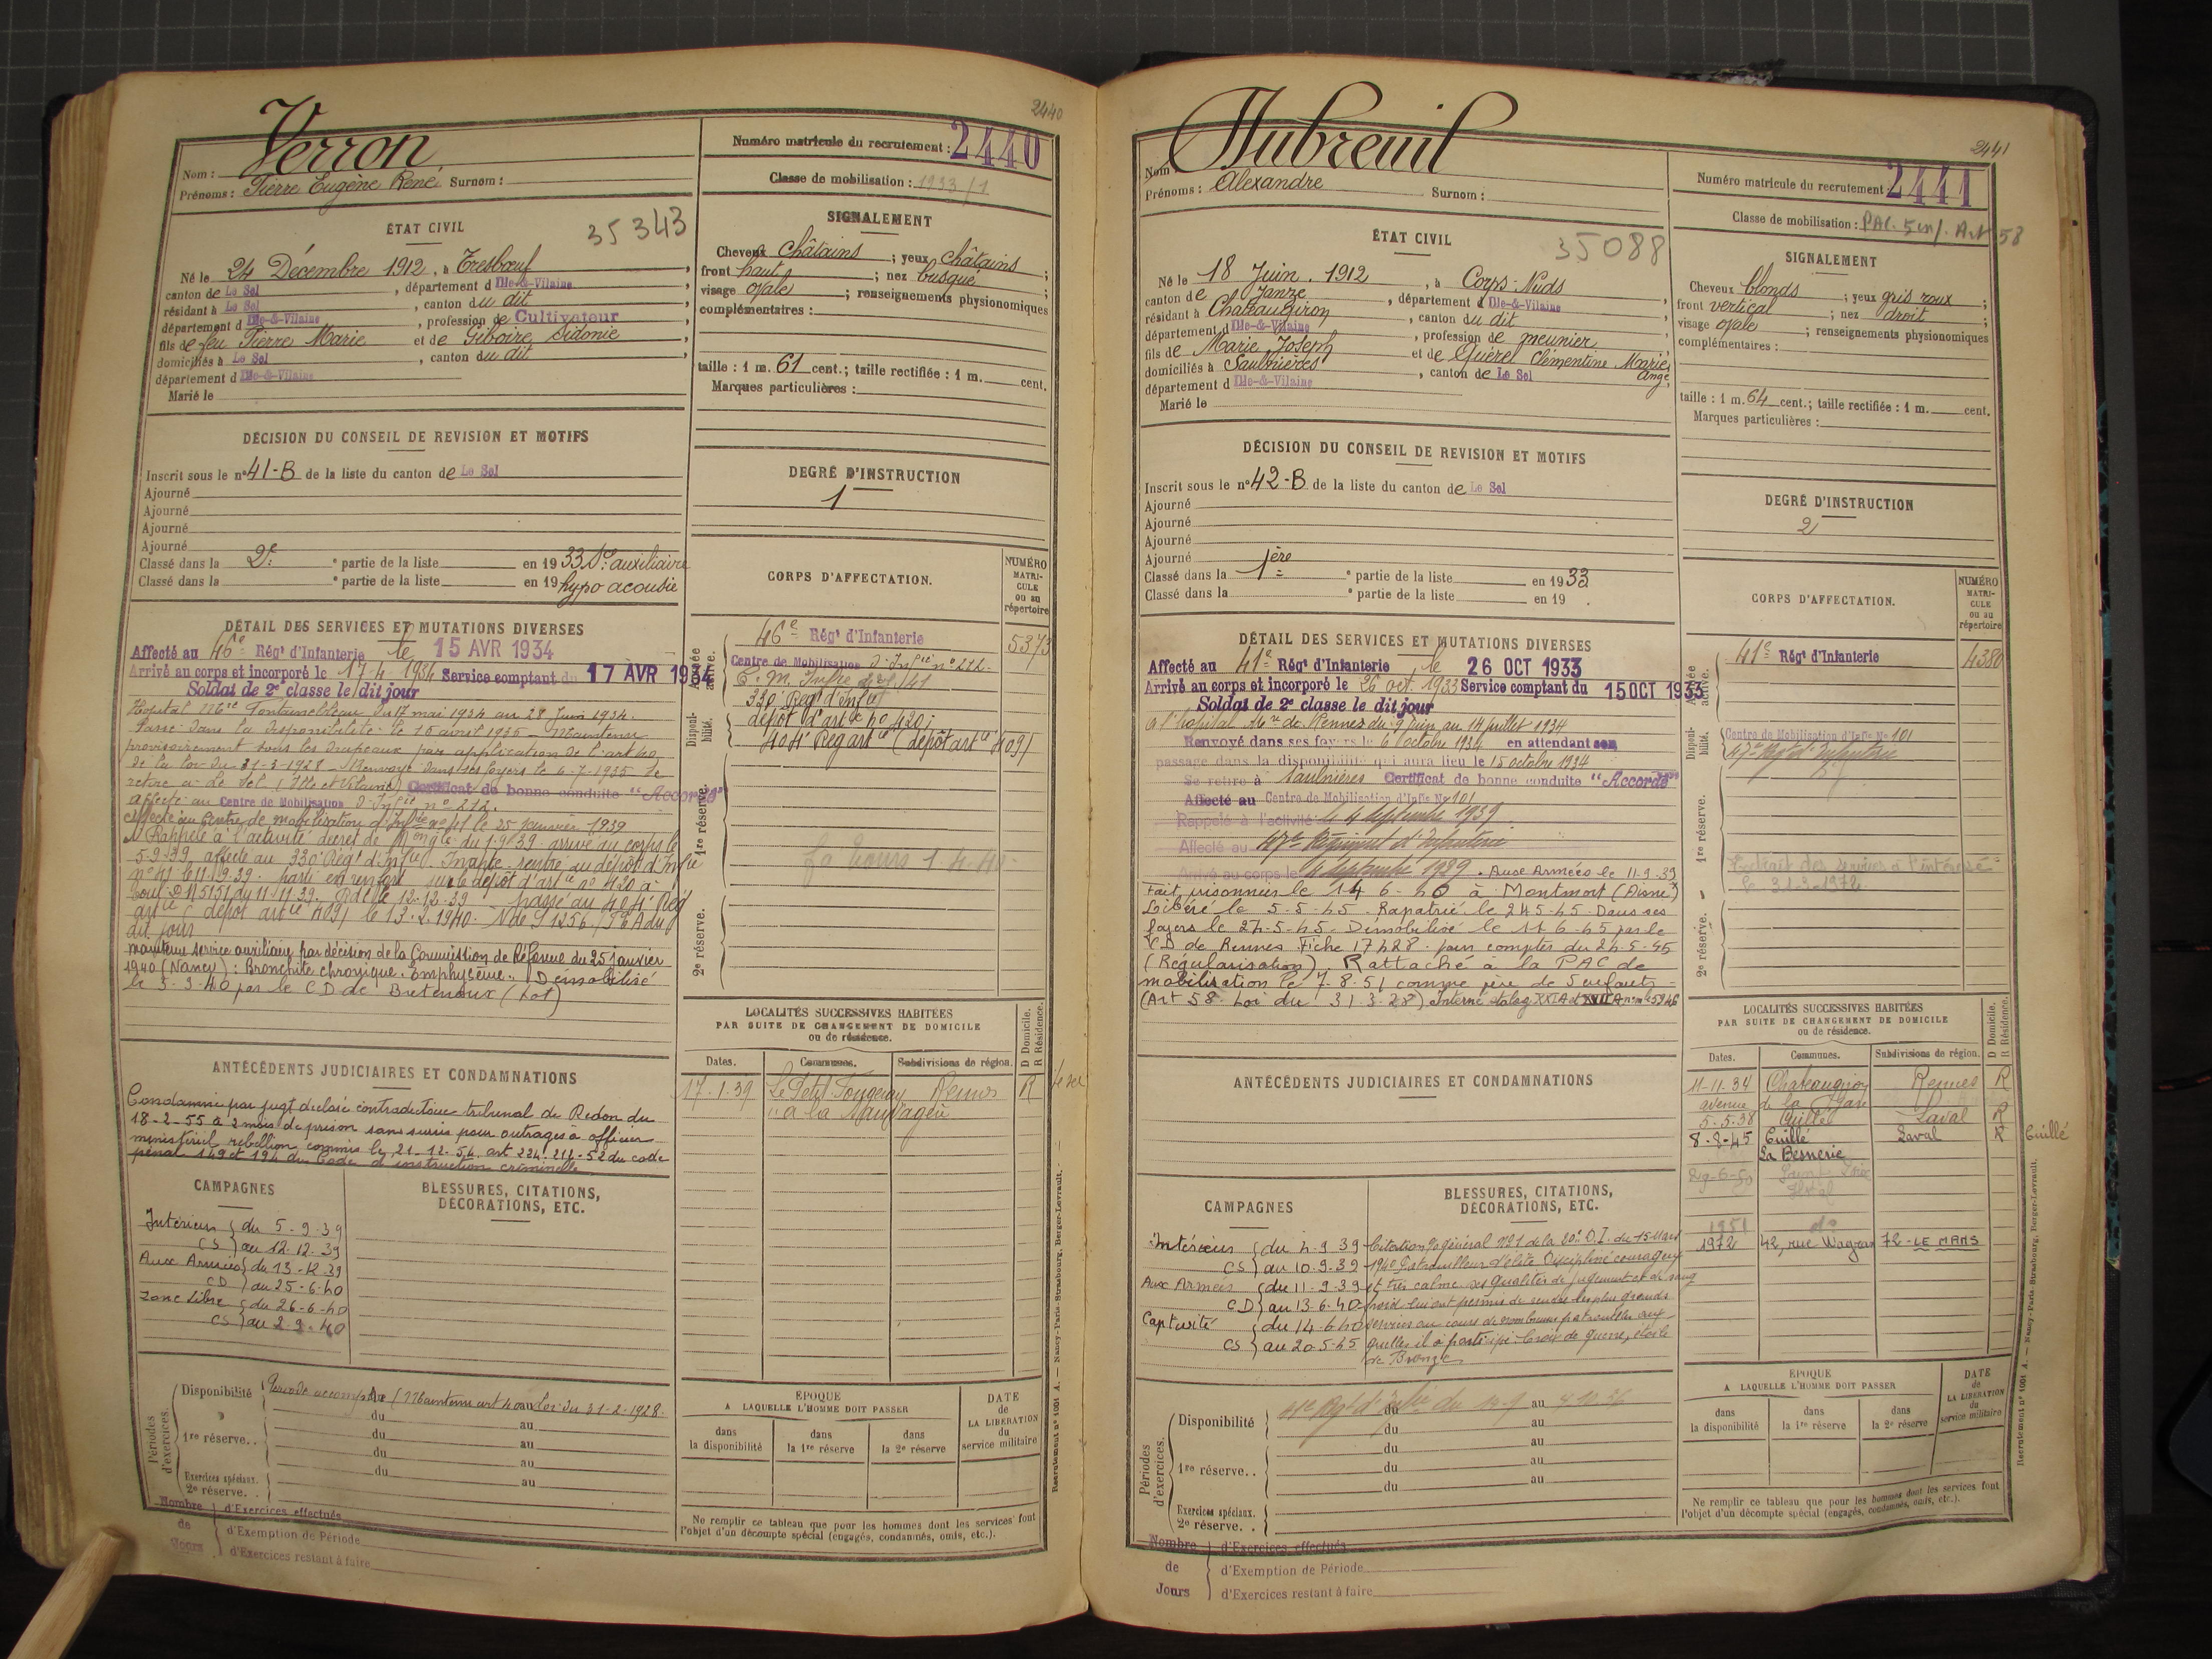 2440
Verron
Nom :
Prénoms : Pierre Eugène René Surnom :
Numéro matricule du recrutement : 2440
Classe de mobilisation : 1933/1
ÉTAT CIVIL
35343
Né le 24 Décembre 1912, à Tresbœuf,
canton de Le Sel, département d Ille-&-Vilaine,
résidant à Le Sel, canton du dit,
département d Ille-&-Vilaine, profession de Cultivateur,
fils de feu Pierre Marie et de Giboire Sidonie,
domiciliés à Le Sel, canton du dit,
département d Ille-&-Vilaine
Marié le
SIGNALEMENT
Cheveux châtains ; yeux châtains ;
front haut ; nez busqué ;
visage ovale ; renseignements physionomiques
complémentaires :
taille : 1 m. 61 cent.; taille rectifiée : 1 m. cent.
Marques particulières :
DÉCISION DU CONSEIL DE REVISION ET MOTIFS
Inscrit sous le n° 41-B de la liste du canton de Le Sel
Ajourné
Ajourné
Ajourné
Ajourné
Classé dans la 2e ° partie de la liste en 1933 Sce auxiliaire
Classé dans la ° partie de la liste en 19 hypo acousie
DEGRÉ D'INSTRUCTION
1
DÉTAIL DES SERVICES ET MUTATIONS DIVERSES
Affecté au 46e Régt d'Infanterie le 15 AVR 1934
Arrivé au corps et incorporé le 17-4-1934 Service comptant du 17 AVR 1934
Soldat de 2e classe le dit jour
Hopital Mre Fontainebleau du 17 mai 1934 au 28 Juin 1934.
Passé dans la disponibilité le 15 avril 1935 - Maintenu
provisoirement sous les drapeaux par application de l'art 40
de la loi du 31-3-1928 - Renvoyé dans ses foyers le 6-7-1935 Se
retire à Le Sel (Ille et Vilaine) Certificat de bonne conduite "Accordé"
Affecté au Centre de Mobilisation d'Infie n° 212.
Affecté au Centre de mobilisation d'Infie n° 41 le 25 janvier 1939
Rappelé à l'activité décret de du 1.9.39 arrivé au corps le
5-9-39 affecté au 330 Régt d'Infie Inapte - rentré au dépôt d'Infie
n° 41 le 11.9.39. parti en renfort sur le dépôt d'artie n° 420 à
Toul D M 5151 du 11.11.39. le 12.12.39 - passé au 404e Rég
artie (dépôt artie 409) le 13.2.1940 - N de S 1256/
dit jour
maintenu service auxiliaire par décision de la Commission de Réforme du 25 janvier
1940 (Nancy) : Bronchite chronique. Emphysème. Démobilisé
le 3.9.40 par le CD de Bretenoux (Lot)
CORPS D'AFFECTATION.
NUMÉRO MATRICULE ou au répertoire
Armée active.
46e Régt d'Infanterie 5373
Disponibilité.
Centre de Mobilisation d'Infie n° 212.
C. M. Infie 41
330 Régt d'Infie
dépôt d'artie n° 420
404e Rég artie (dépôt artie 409)
1re réserve.
2e réserve.
LOCALITÉS SUCCESSIVES HABITÉES
PAR SUITE DE CHANGEMENT DE DOMICILE
ou de résidence.
D Domicile. R Résidence.
Dates. Communes. Subdivisions de région.
17.1.39 Le Petit Fougeray Rennes R
ANTÉCÉDENTS JUDICIAIRES ET CONDAMNATIONS
Condamné par jugt déclaré contradictoire tribunal de Redon du
18-2-55 à 2 mois de prison sans sursis pour outrages à officier
ministériel rébellion commis le 21-12-54. art 224-212-52 du code
pénal 149 et 194 du Code d'instruction criminelle
CAMPAGNES
Intérieur CS du 5-9-39 au 12-12-39
Aux Armées CD du 13-12-39 au 25-6-40
Zone Libre CS du 26-6-40 au 2-9-40
BLESSURES, CITATIONS,
DÉCORATIONS, ETC.
Périodes d'exercices.
Disponibilité Période accomplie (Maintenu art 40 de la loi du 31-3-1928.
du au
1re réserve.. du au
du au
du au
Exercices spéciaux.
2e réserve. .
Nombre de Jours
d'Exercices effectués
d'Exemption de Période
d'Exercices restant à faire
ÉPOQUE
A LAQUELLE L'HOMME DOIT PASSER
DATE DE LA LIBÉRATION du service militaire
dans la disponibilité
dans la 1re réserve
dans la 2e réserve
Ne remplir ce tableau que pour les hommes dont les services font
l'objet d'un décompte spécial (engagés, condamnés, omis, etc.).
Recrutement n° 1001 A. — Nancy-Paris-Strasbourg, Berger-Levrault.
2441
Aubreuil
Nom :
Prénoms : Alexandre Surnom :
Numéro matricule du recrutement : 2441
Classe de mobilisation : PAC. 5 enf. Art 58
ÉTAT CIVIL
35088
Né le 18 Juin 1912, à Corps-Nuds,
canton de Janzé, département d Ille-&-Vilaine,
résidant à Chateaugiron, canton du dit,
département d Ille-&-Vilaine, profession de meunier,
fils de Marie Joseph et de Quérel Clémentine Marie Ange,
domiciliés à Saulnières, canton de Le Sel
département d Ille-&-Vilaine
Marié le
SIGNALEMENT
Cheveux blonds ; yeux gris roux ;
front vertical ; nez droit ;
visage ovale ; renseignements physionomiques
complémentaires :
taille : 1 m. 64 cent.; taille rectifiée : 1 m. cent.
Marques particulières :
DÉCISION DU CONSEIL DE REVISION ET MOTIFS
Inscrit sous le n° 42-B de la liste du canton de Le Sel
Ajourné
Ajourné
Ajourné
Ajourné
Classé dans la 1ère ° partie de la liste en 1933
Classé dans la ° partie de la liste en 19
DEGRÉ D'INSTRUCTION
2
DÉTAIL DES SERVICES ET MUTATIONS DIVERSES
Affecté au 41e Régt d'Infanterie le 26 OCT 1933
Arrivé au corps et incorporé le 26 oct. 1933 Service comptant du 15 OCT 1933
Soldat de 2e classe le dit jour
A l'hopital Mre de Rennes du 9 juin au 14 juillet 1934
Renvoyé dans ses foyers le 6 octobre 1934 en attendant son
passage dans la disponibilité qui aura lieu le 15 octobre 1934
Se retire à Saulnières Certificat de bonne conduite "Accordé"
Affecté au Centre de Mobilisation d'Infie No 101
Rappelé à l'activité le 4 septembre 1939
Affecté au 47e Régiment d'Infanterie
Arrivé au corps le 4 septembre 1939. Aux Armées le 11-9-39
Fait prisonnier le 14 6-40 à Montmort (Aisne)
Libéré le 5-5-45. Rapatrié le 24 5-45. Dans ses
foyers le 24-5-45. Démobilisé le 11 6-45 par le
CD de Rennes Fiche 17428 pour compter du 24-5-45
(Régularisation). Rattaché à la PAC de
mobilisation le 7-8-51 comme père de 5 enfants -
(Art 58. Loi du 31-3-28) Interné stalag XXIA et XVIIA
CORPS D'AFFECTATION.
NUMÉRO MATRICULE ou au répertoire
Armée active.
41e Régt d'Infanterie 4380
Disponibilité.
Centre de Mobilisation d'Infie No 101
47e Régt d'Infanterie
1re réserve.
Extrait des services à l'intéressé
le 31-3-1972
2e réserve.
LOCALITÉS SUCCESSIVES HABITÉES
PAR SUITE DE CHANGEMENT DE DOMICILE
ou de résidence.
D Domicile. R Résidence.
Dates. Communes. Subdivisions de région.
11-11-34 Chateaugiron Rennes R
avenue de la Gare
5-5-38 Cuillé Laval R
8-8-45 Cuillé Laval R Cuillé
La Besnerie
29-6-50
1951 do
1972 42, rue Wagram 72-LE MANS
ANTÉCÉDENTS JUDICIAIRES ET CONDAMNATIONS
CAMPAGNES
Intérieur CS du 4-9-39 au 10-9-39
Aux Armées CD du 11-9-39 au 13-6-40
Captivité CS du 14-6-40 au 20-5-45
BLESSURES, CITATIONS,
DÉCORATIONS, ETC.
Citation Oe général n° 21 de la 20e D.I. du 15 Mars
1940 Patrouilleur d'élite Discipliné courageux
et très calme ses qualités de jugement et de sang
froid lui ont permis de rendre les plus grands
services au cours de nombreuses patrouilles aux
quelles il a participé. Croix de guerre, étoile
de Bronze
Périodes d'exercices.
Disponibilité 41e Régt d'Infie du au
du au
1re réserve.. du au
du au
du au
Exercices spéciaux.
2e réserve. .
Nombre de Jours
d'Exercices effectués
d'Exemption de Période
d'Exercices restant à faire
ÉPOQUE
A LAQUELLE L'HOMME DOIT PASSER
DATE DE LA LIBÉRATION du service militaire
dans la disponibilité
dans la 1re réserve
dans la 2e réserve
Ne remplir ce tableau que pour les hommes dont les services font
l'objet d'un décompte spécial (engagés, condamnés, omis, etc.).
Recrutement n° 1001 A. — Nancy-Paris-Strasbourg, Berger-Levrault.